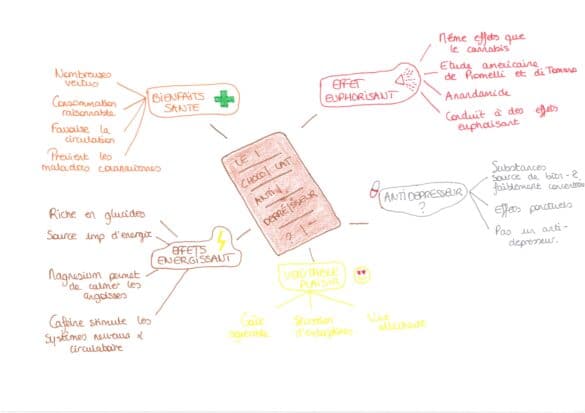 Nombreuses
vertus
Consommation
raisonnable
Favorise la
circulation
Prévient les
maladies coronariennes
BIENFAITS
SANTE
EFFET
EUPHORISANT
Même effets que
le cannabis
Etude américaine
de Piomelli et di Tomaso
Anandamide
Conduit à des effets
euphorisant
LE
CHOCOLAT
ANTI
DEPRESSEUR
? !
ANTIDEPRESSEUR
?
Substances
Source de bien-ê
faiblement
Effets ponctuels
Pas un anti-
depresseur.
Riche en glucides
Source imp d'énergie
Magnesium permet
de calmer les
angoisses
Caféine stimule les
systèmes nerveux &
circulatoire
EFFETS
ENERGISSANT
VERITABLE
PLAISIR
Goût
agréable
Sécrétion
d'endorphines